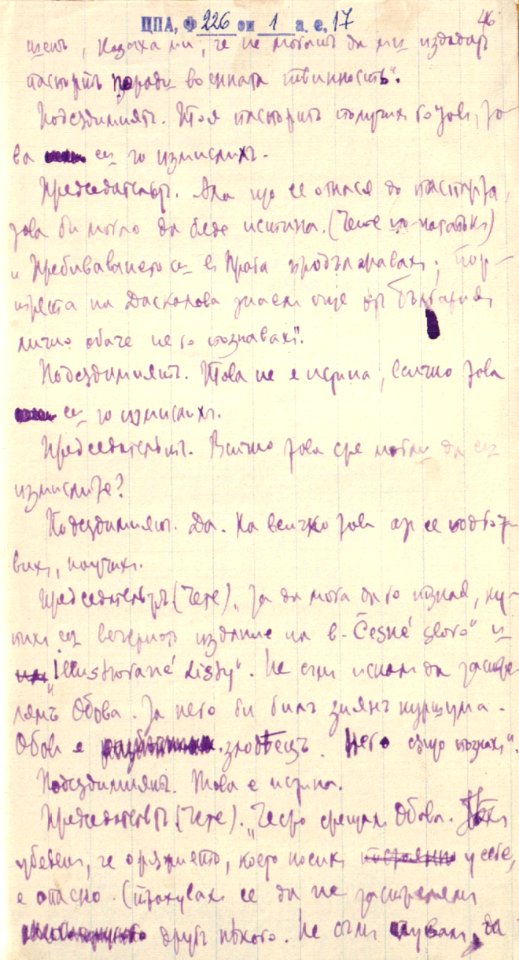 ЦПА, Ф 226 оп 1 а. е. 17
46
щенъ, казаха ми, че не могатъ да ми издадатъ
паспортъ поради военната повинность".
Подсѫдимиятъ. Тоя паспортъ получих го това
ва азъ си го измислихъ.
Председательтъ. Ала що се относя до паспорта,
това би могло да бѫде истина. (Чете по-нататъкъ)
и пребиваването си въ Прага продължавахъ; Пор-
трета на Даскалова знаехъ още отъ България,
лично обаче не го познавахъ".
Подсѫдимиятъ. Това не е истина, всичко това
си го измислихъ.
Председательтъ. Всичко това сте могли да си
измислите?
Подсѫдимиятъ. Да. На всичко това азъ се подгот-
вихъ, научихъ.
Председательтъ (Чете) „За да мога да го позная, ку-
пихъ си вечерното издание на в. České slovo" и
„Illustrované Listy". Не съмъ искалъ да застре-
лямъ Обова. За него би билъ зиянъ куршума.
Обовъ е злодѣецъ. Него също познахъ".
Подсѫдимиятъ. Това е истина.
Председательтъ (Чете). „Често срещахъ Обова. Бѣхъ
убеденъ, че орѫжието, което носихъ у себе,
е опасно. Страхувахъ се да не застрелямъ
другъ нѣкого. Не съмъ чувалъ, да